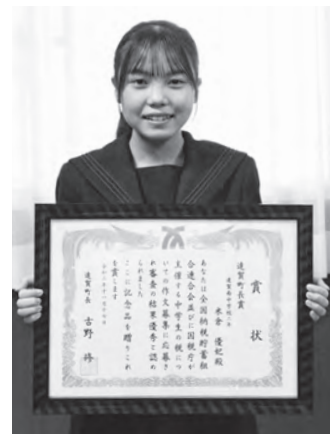 賞状
遠賀町長賞
遠賀南中学校二年
末倉優妃殿
あなたは全国納税貯蓄組
合連合会並びに国税庁が
主催する中学生の税につ
いての作文募集に応募さ
れ審査の結果優秀と認め
られました
ここに記念品を贈りこれ
を賞します
遠賀町長 古野修